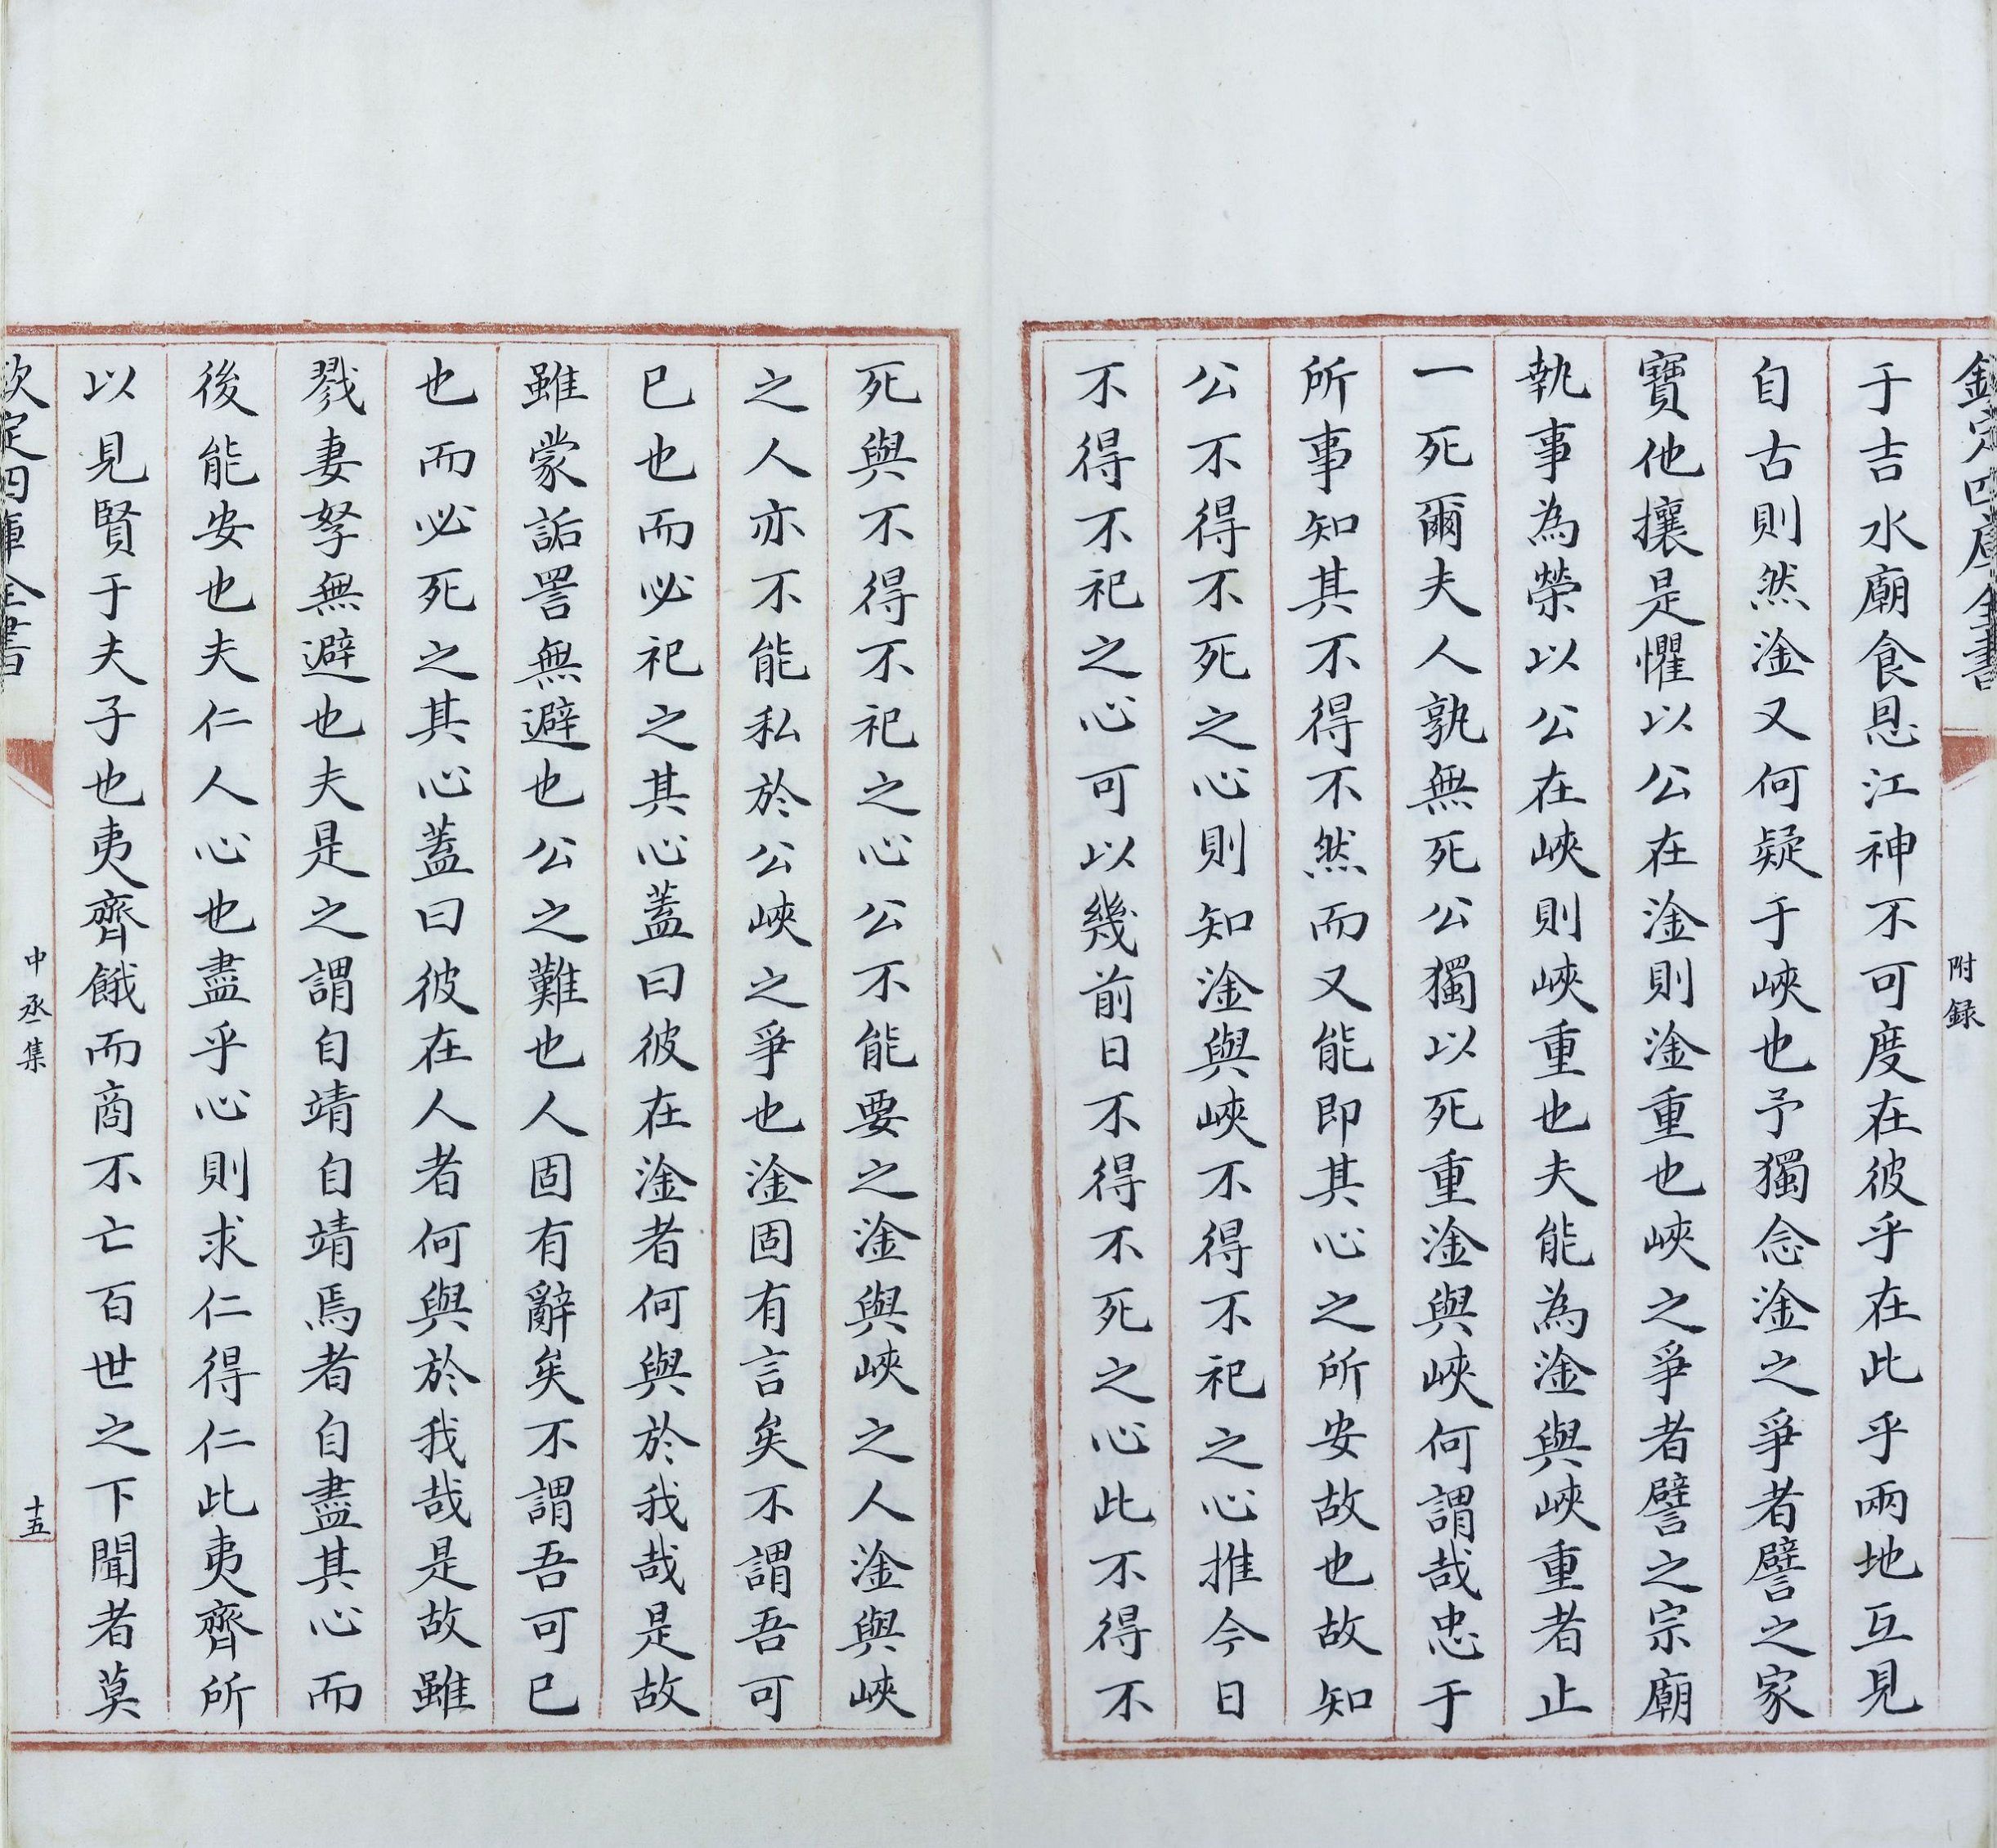 欽定四庫全書
附録
于吉水廟食恩江神不可度在彼乎在此乎兩地互見
自古則然淦又何疑于峽也予獨念淦之爭者譬之家
寶他攘是懼以公在淦則淦重也峽之爭者譬之宗廟
執事為榮以公在峽則峽重也夫能為淦與峽重者止
一死爾夫人孰無死公獨以死重淦與峽何謂哉忠于
所事知其不得不然而又能即其心之所安故也故知
公不得不死之心則知淦與峽不得不祀之心推今日
不得不祀之心可以幾前日不得不死之心此不得不
死與不得不祀之心公不能要之淦與峽之人淦與峽
之人亦不能私於公峽之爭也淦固有言矣不謂吾可
已也而必祀之其心蓋曰彼在淦者何與於我哉是故
雖蒙詬詈無避也公之難也人固有辭矣不謂吾可已
也而必死之其心蓋曰彼在人者何與於我哉是故雖
戮妻孥無避也夫是之謂自靖自靖焉者自盡其心而
後能安也夫仁人心也盡乎心則求仁得仁此夷齊所
以見賢于夫子也夷齊餓而商不亡百世之下聞者莫
欽定四庫全書
中丞集
十五